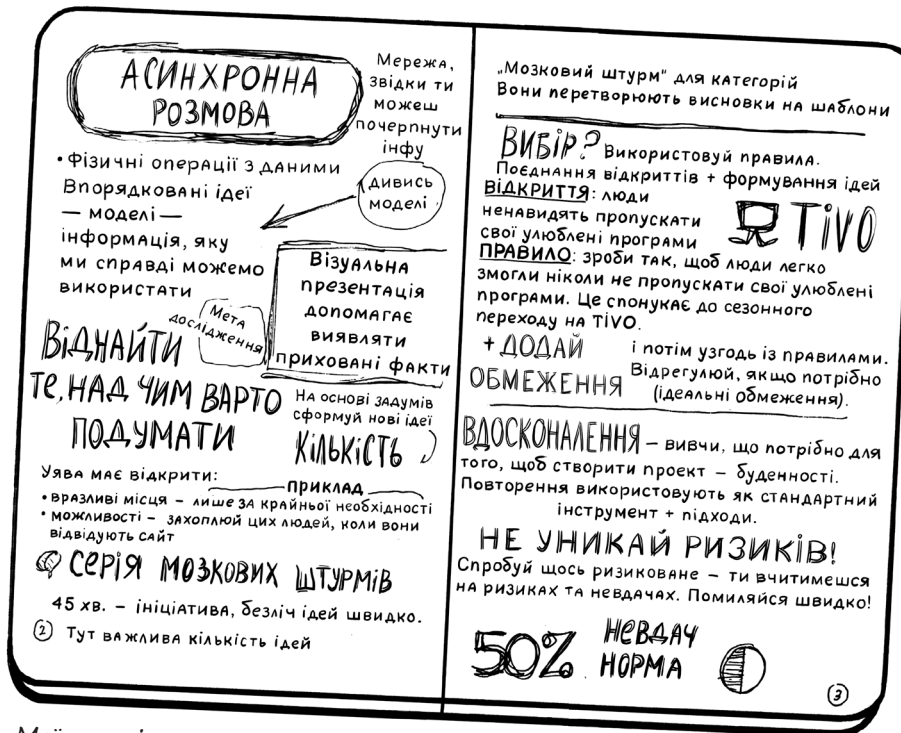 АСИНХРОННА
РОЗМОВА
Мережа,
звідки ти
можеш
почерпнути
інфу
• Фізичні операції з даними
Впорядковані ідеї
— моделі —
інформація, яку
ми справді можемо
використати
дивись
моделі
Візуальна
презентація
допомагає
виявляти
приховані факти
Мета
дослідження
ВІДНАЙТИ
ТЕ, НАД ЧИМ ВАРТО
ПОДУМАТИ
На основі задумів
сформуй нові ідеї
КІЛЬКІСТЬ
Уява має відкрити:
приклад
• вразливі місця – лише за крайньої необхідності
• можливості – захоплюй цих людей, коли вони
відвідують сайт
СЕРІЯ МОЗКОВИХ ШТУРМІВ
45 хв. – ініціатива, безліч ідей швидко.
Тут важлива кількість ідей
2
„Мозковий штурм" для категорій
Вони перетворюють висновки на шаблони
ВИБІР? Використовуй правила.
Поєднання відкриттів + формування ідей
ВІДКРИТТЯ: люди
ненавидять пропускати
свої улюблені програми
TiVO
ПРАВИЛО: зроби так, щоб люди легко
змогли ніколи не пропускати свої улюблені
програми. Це спонукає до сезонного
переходу на TiVO.
+ ДОДАЙ
ОБМЕЖЕННЯ
і потім узгодь із правилами.
Відрегулюй, якщо потрібно
(ідеальні обмеження).
ВДОСКОНАЛЕННЯ – вивчи, що потрібно для
того, щоб створити проект – буденності.
Повторення використовують як стандартний
інструмент + підходи.
НЕ УНИКАЙ РИЗИКІВ!
Спробуй щось ризиковане – ти вчитимешся
на ризиках та невдачах. Помиляйся швидко!
50% НЕВДАЧ
НОРМА
3